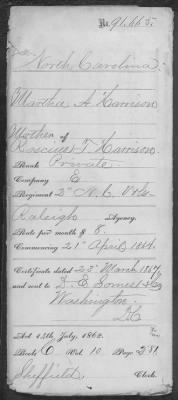 No. 91.665.
North Carolina.
Martha A Harrison
Mother of
Roscius T Harrison
Rank Private
Company E
Regiment 2d N.C. Vols
Raleigh Agency.
Rate per month $ 8.
Commencing 21st April 1864.
Certificate dated 23d March 1867
and sent to D. E. Somes
Washington
D.C.
Act 14th July, 1862.
Book C Vol. 10 Page 281.
Sheffield Clerk.